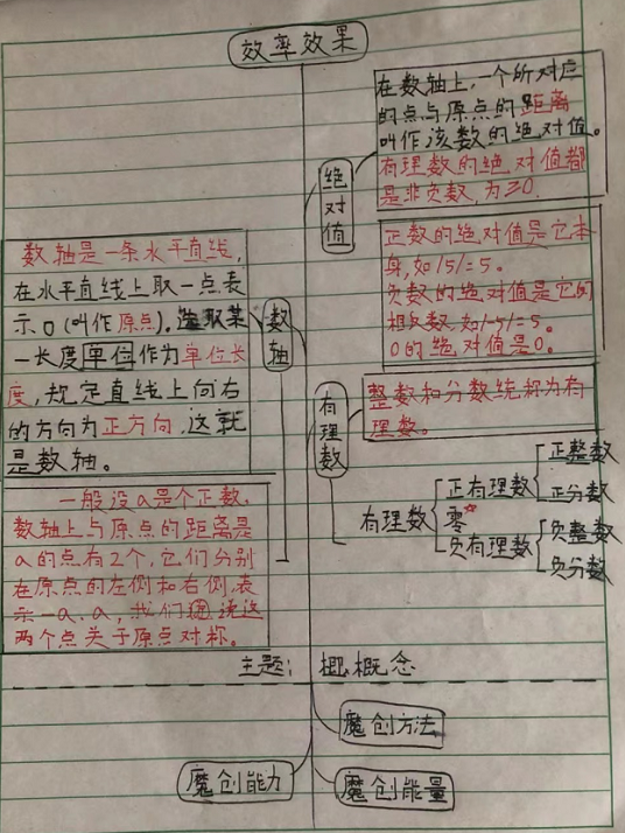 效率效果
在数轴上,一个所对应
的点与原点的距离
叫作该数的绝对值。
有理数的绝对值都
是非负数,为≥0.
绝
对
值
正数的绝对值是它本
身,如/5/=5。
负数的绝对值是它的
相反数,如/-5/=5。
0的绝对值是0。
数轴是一条水平直线,
在水平直线上取一点表
示0(叫作原点),选取某
一长度单位作为单位长
度,规定直线上向右
的方向为正方向,这就
是数轴。
数
轴
一般设a是个正数,
数轴上与原点的距离是
a的点有2个,它们分别
在原点的左侧和右侧,表
示-a、a,我们说这
两个点关于原点对称。
有
理
数
整数和分数统称为有
理数。
有理数
正有理数
正整数
正分数
零
负有理数
负整数
负分数
主题: 概念
魔创方法
魔创能力
魔创能量